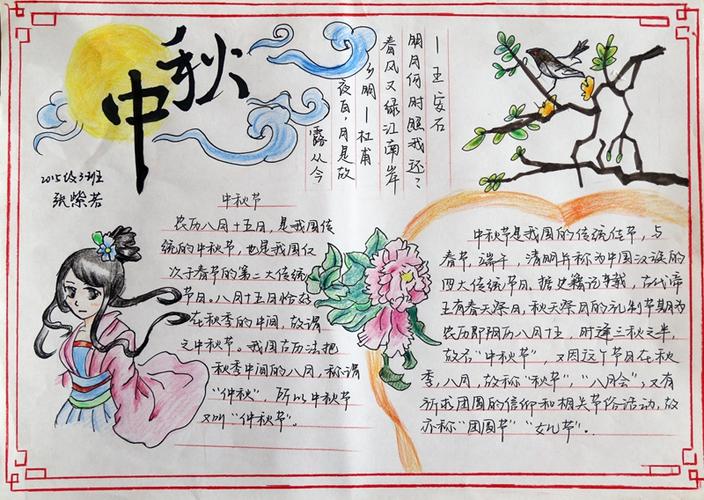 中秋
2015级3班
张紫若
露从今
夜白，月是故
乡明—杜甫
春风又绿江南岸
明月何时照我还？
—王安石
中秋节
农历八月十五日，是我国传
统的中秋节，也是我国仅
次于春节的第二大传统
节日。八月十五恰好
在秋季的中间，故谓
之中秋节。我国古历法把
秋季中间的八月，称谓
“仲秋”，所以中秋节
又叫“仲秋节”。
中秋节是我国的传统佳节，与
春节，端午，清明并称为中国汉族的
四大传统节日。据史籍记载，古代帝
王有春天祭日，秋天祭月的礼制节期为
农历即阴历八月十五，时逢三秋之半，
故名“中秋节”，又因这个节日在秋
季，八月，故称“秋节”，“八月会”，又有
祈求团圆的信仰和相关节俗活动，故
亦称“团圆节”“女儿节”..